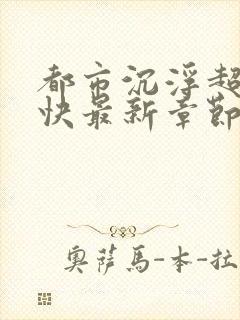 都市沉浮超
快最新章節
奧薩馬-本-拉